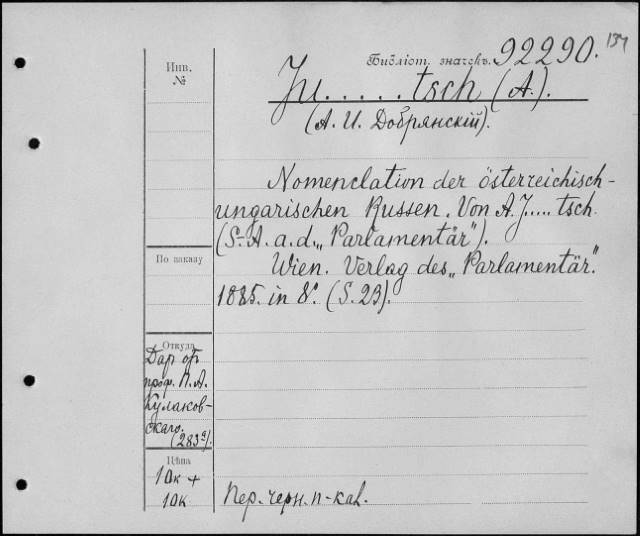 134
Библіот. значекъ. 92290.
Инв.
№
Ju.....tsch (A.).
(А. И. Добрянскій).
Nomenclation der österreichisch-
ungarischen Russen. Von A. J.....tsch.
(S.-A. a. d. „Parlamentär").
По заказу
Wien. Verlag des „Parlamentär".
1885. in 8º. (S. 23).
Откуда
Даръ отъ
проф. П. А.
Кулаков-
скаго.
(283а).
Цѣна
10к +
10к
Пер. черн. п-каl.